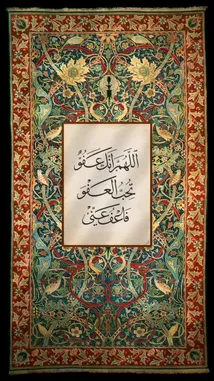 اللَّهُمَّ إِنَّكَ عَفُوٌّ
تُحِبُّ الْعَفْوَ
فَاعْفُ عَنِّي